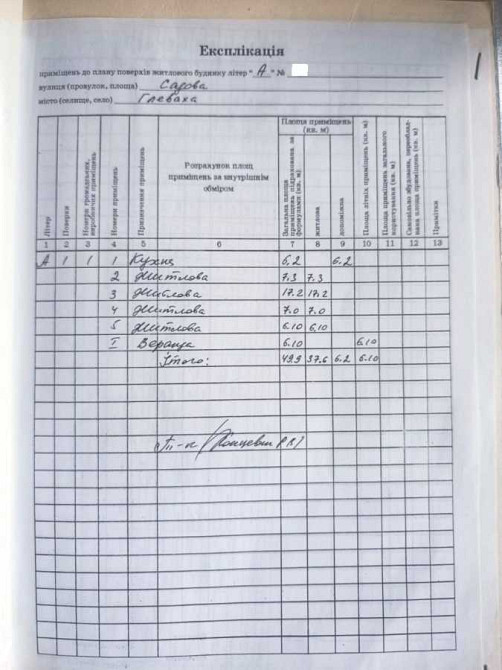 Експлікація
приміщень до плану поверхів житлового будинку літер "А" №
вулиця (провулок, площа) Садова
місто (селище, село) Глеваха
Літер
Поверхи
Номери громадських, виробничих приміщень
Номери приміщень
Призначення приміщень
Розрахунок площ приміщень за внутрішнім обміром
Площа приміщень (кв. м)
Загальна площа приміщень підрахована за формулами (кв. м)
житлова
допоміжна
Площа літніх приміщень (кв. м)
Площа приміщень загального користування (кв. м)
Самовільно збудована, переобладнана площа приміщень (кв. м)
Примітки
1 2 3 4 5 6 7 8 9 10 11 12 13
А 1 1 1 Кухня 6.2 6.2
2 житлова 7.3 7.3
3 житлова 17.2 17.2
4 житлова 7.0 7.0
5 житлова 6.10 6.10
I Веранда 6.10 6.10
Итого: 49.9 37.6 6.2 6.10